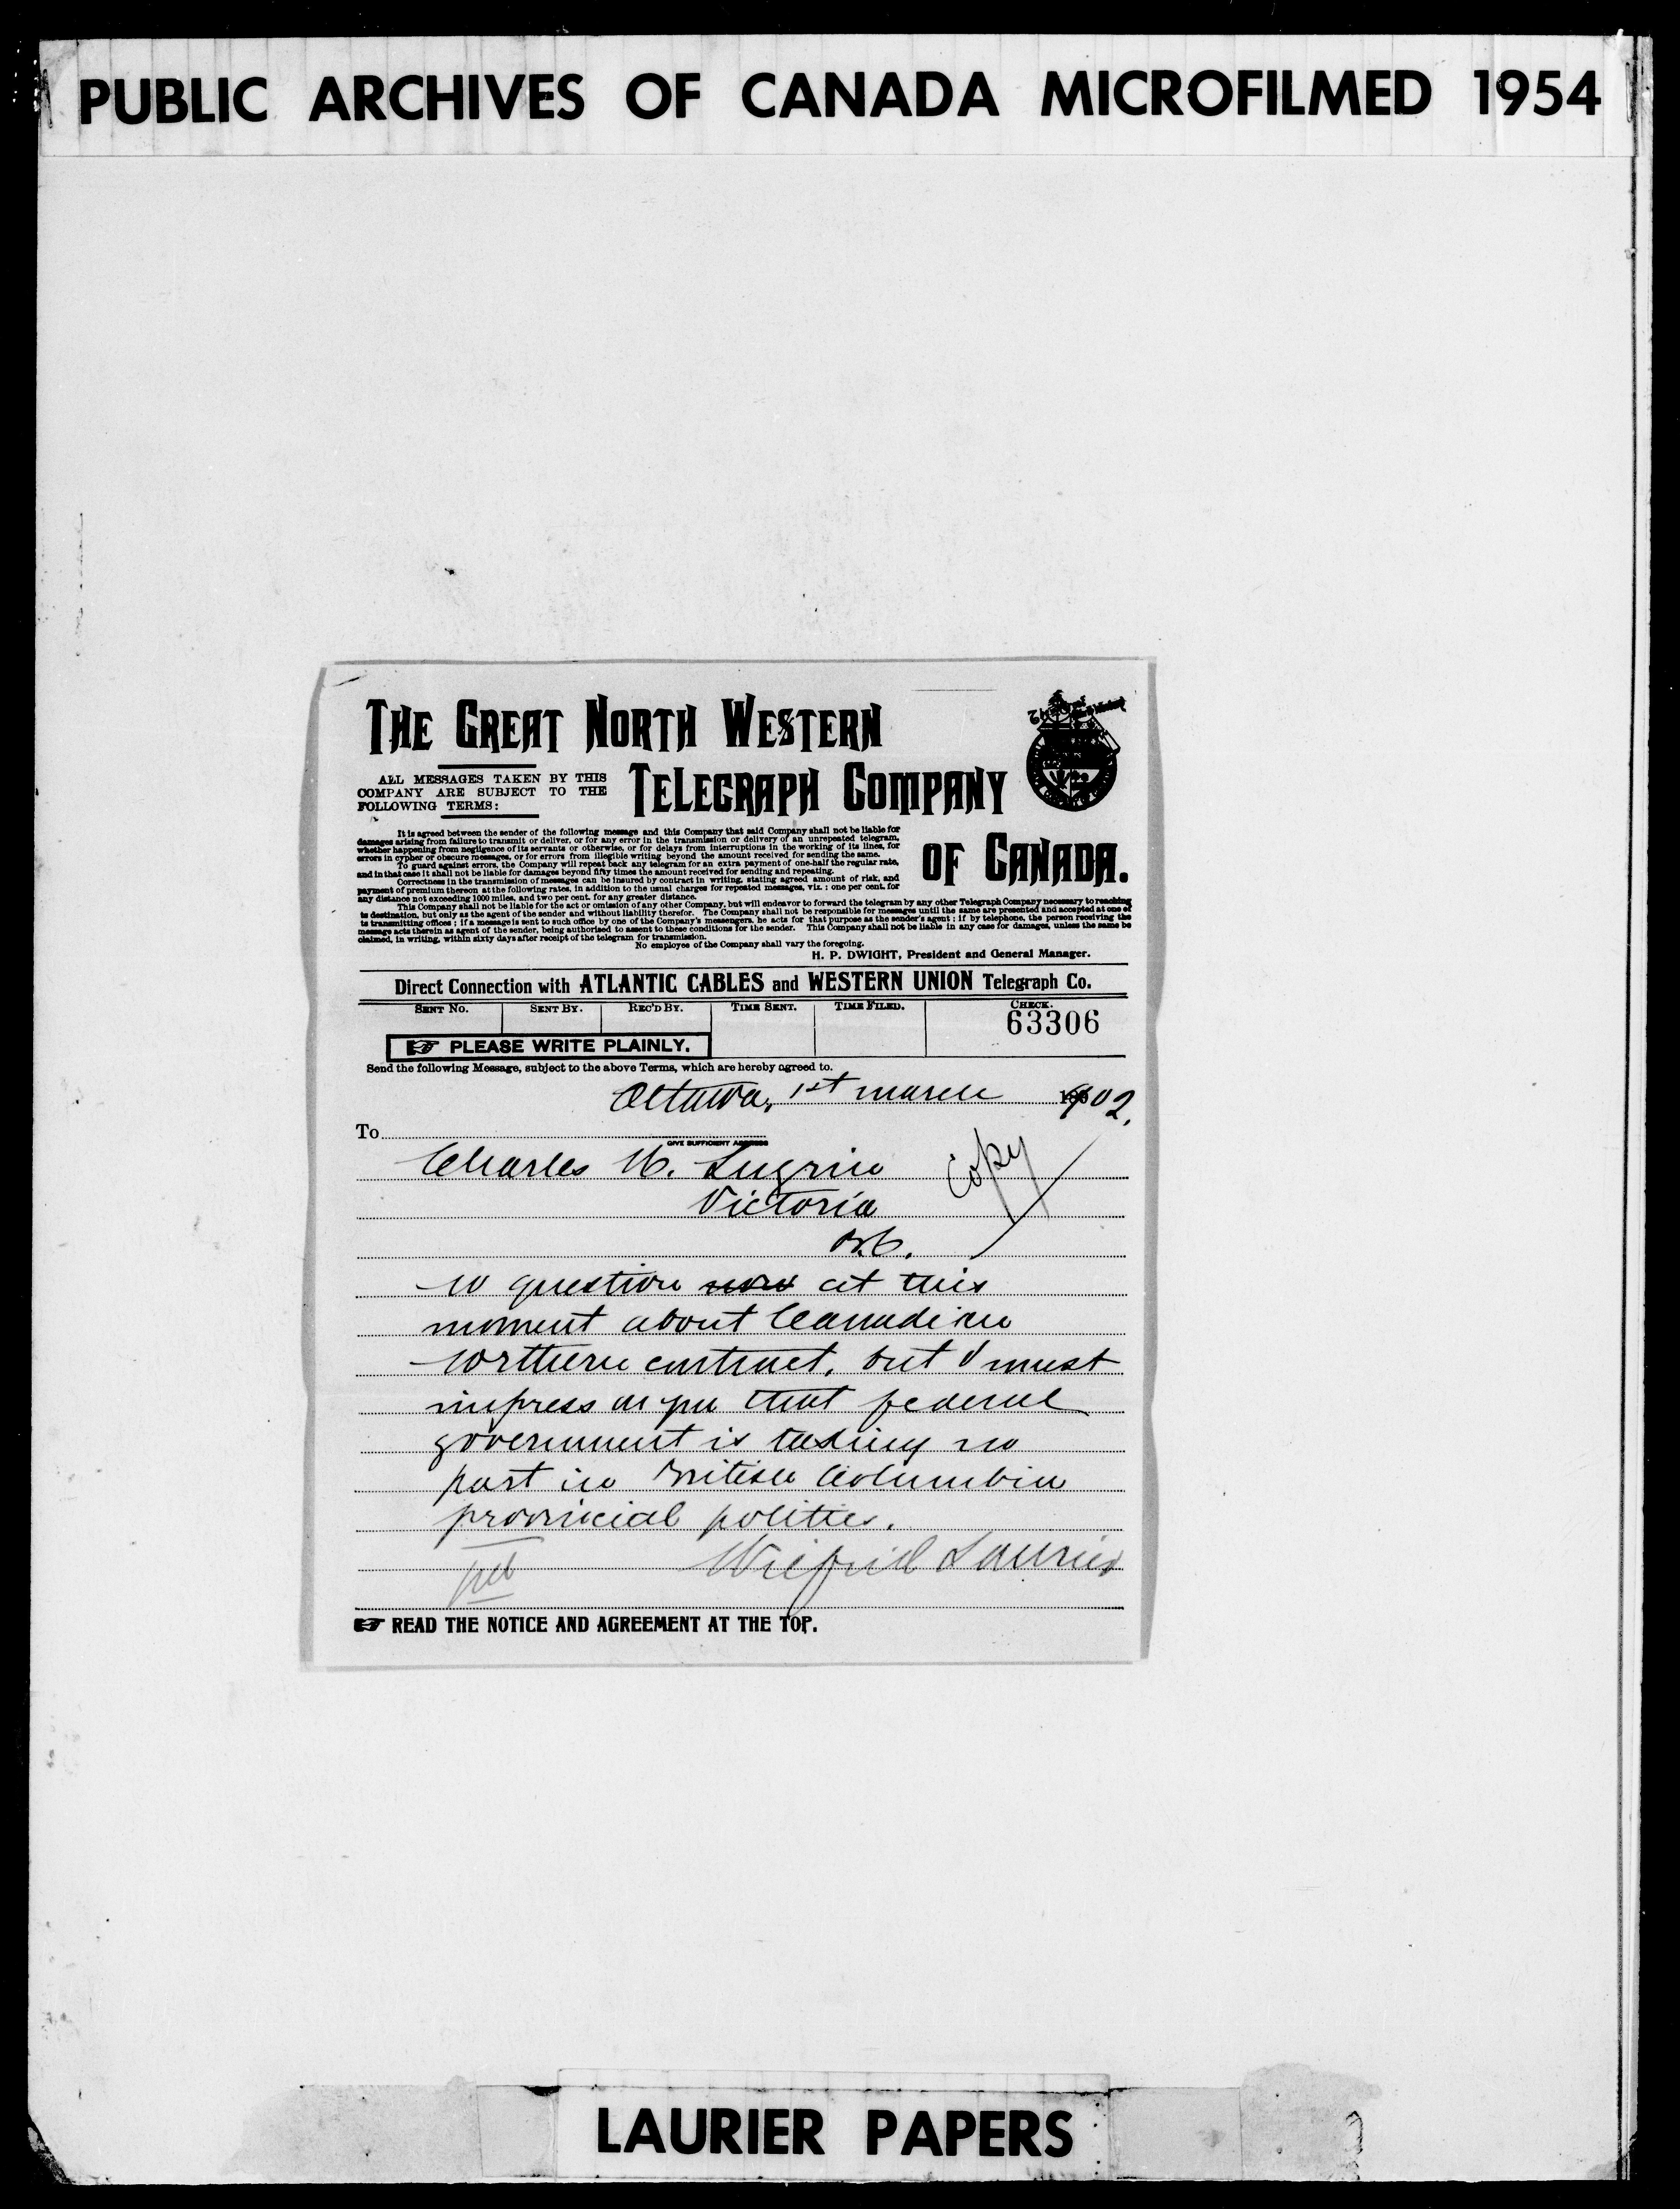 PUBLIC ARCHIVES OF CANADA MICROFILMED 1954
THE GREAT NORTH WESTERN
TELEGRAPH COMPANY
OF CANADA.
ALL MESSAGES TAKEN BY THIS
COMPANY ARE SUBJECT TO THE
FOLLOWING TERMS:
It is agreed between the sender of the following message and this Company that said Company shall not be liable for
damages arising from failure to transmit or deliver, or for any error in the transmission or delivery of an unrepeated telegram,
whether happening from negligence of its servants or otherwise, or for delays from interruptions in the working of its lines, for
errors in cypher or obscure messages, or for errors from illegible writing beyond the amount received for sending the same.
To guard against errors, the Company will repeat back any telegram for an extra payment of one-half the regular rate,
and in that case it shall not be liable for damages beyond fifty times the amount received for sending and repeating.
Correctness in the transmission of messages can be insured by contract in writing, stating agreed amount of risk, and
payment of premium thereon at the following rates, in addition to the usual charges for repeated messages, viz.: one per cent. for
any distance not exceeding 1000 miles, and two per cent. for any greater distance.
This Company shall not be liable for the act or omission of any other Company, but will endeavor to forward the telegram by any other Telegraph Company necessary to reaching
its destination, but only as the agent of the sender and without liability therefor. The Company shall not be responsible for messages until the same are presented and accepted at one of
its transmitting offices; if a message is sent to such office by one of the Company's messengers, he acts for that purpose as the sender's agent; if by telephone, the person receiving the
message acts therein as agent of the sender, being authorised to assent to these conditions for the sender. This Company shall not be liable in any case for damages, unless the same be
claimed, in writing, within sixty days after receipt of the telegram for transmission.
No employee of the Company shall vary the foregoing.
H. P. DWIGHT, President and General Manager.
Direct Connection with ATLANTIC CABLES and WESTERN UNION Telegraph Co.
SENT NO. SENT BY. REC'D BY. TIME SENT. TIME FILED. CHECK.
63306
PLEASE WRITE PLAINLY.
Send the following Message, subject to the above Terms, which are hereby agreed to.
Ottawa, 1st march 1902.
To
GIVE SUFFICIENT ADDRESS
Charles H. Lugrin
Copy
Victoria
B.C.
No question now at this
moment about Canadian
Northern contract, but I must
impress on you that federal
government is taking no
part in British Columbia
provincial politics.
Wilfrid Laurier
READ THE NOTICE AND AGREEMENT AT THE TOP.
LAURIER PAPERS